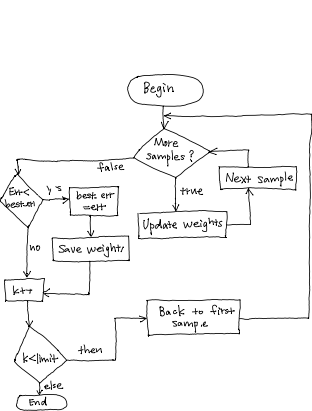 Begin
More
samples ?
false
true
Next sample
Update weights
Err<
best.err
best err
=err
no
Save weights
k++
Back to first
sample
k<limit
then
else
End